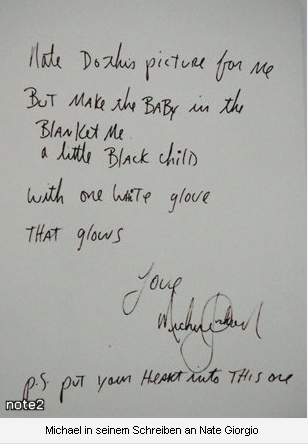 Nate Do this picture for me
But make the Baby in the
Blanket Me
a little Black child
with one white glove
THAT glows
Love
Michael Jackson
p.s. put your HEART into THIS one
note2
Michael in seinem Schreiben an Nate Giorgio